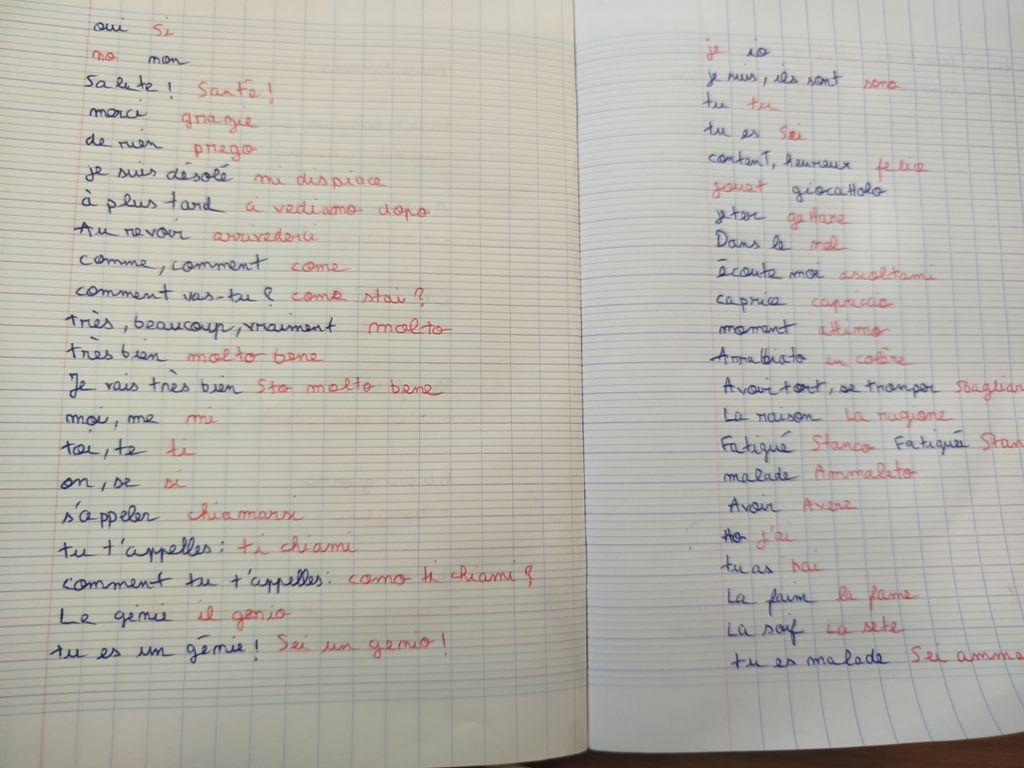 oui si
no non
Salute ! Santé !
merci grazie
de rien prego
je suis désolé mi dispiace
à plus tard ci vediamo dopo
Au revoir arrivederci
comme, comment come
comment vas-tu ? come stai ?
très, beaucoup, vraiment molto
très bien molto bene
Je vais très bien Sto molto bene
moi, me mi
toi, te ti
on, se si
s'appeler chiamarsi
tu t'appelles : ti chiami
comment tu t'appelles : come ti chiami ?
Le génie il genio
tu es un génie ! Sei un genio !
je io
je suis, ils sont sono
tu tu
tu es Sei
content, heureux felice
jouet giocattolo
jeter gettare
Dans le nel
écoute moi ascoltami
caprice capriccio
moment attimo
Arrabbiato en colère
Avoir tort, se tromper Sbagliar
La raison La ragione
Fatigué Stanco Fatigué Stan
malade Ammalato
Avoir Avere
Ho j'ai
tu as hai
La faim la fame
La soif La sete
tu es malade Sei amma